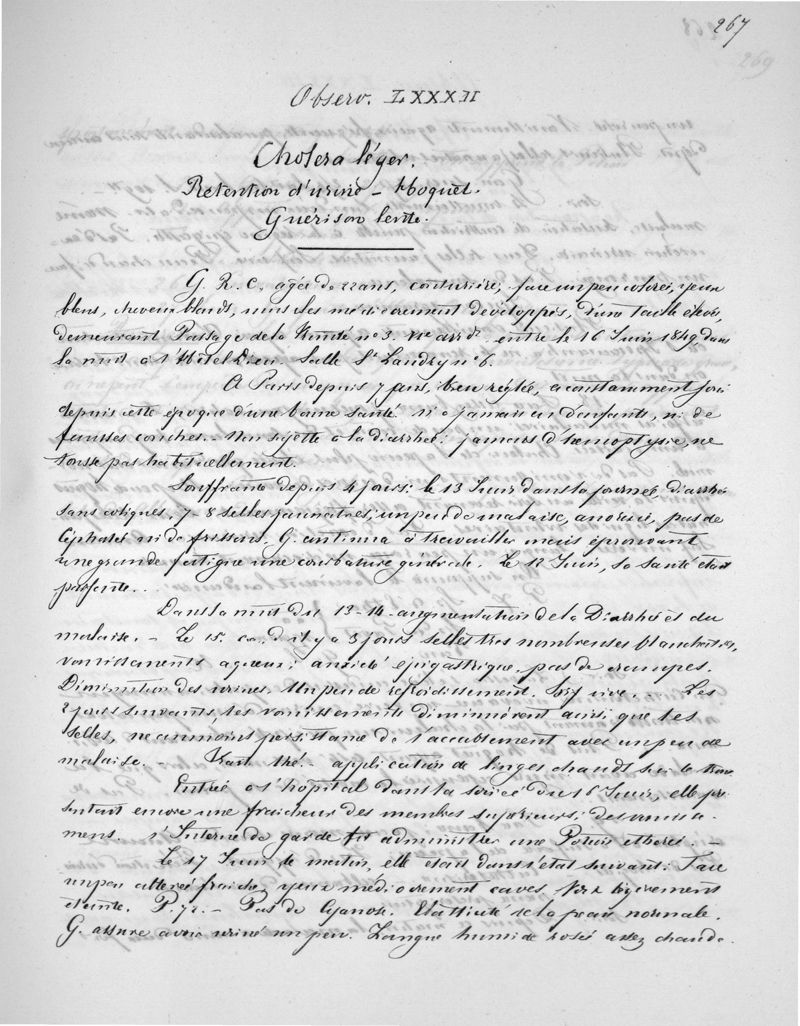 267
269
Observ. LXXXII
Cholera léger.
Rétention d'urine – Hoquet.
Guérison lente.
G. R. C. agée de 22 ans, couturière, face un peu colorée, yeux
bleus, cheveux blonds, muscles médiocrement développés, d'une taille
demeurant Passage de la Trinité nº 3. entre le 16 Juin 1849 dans
la nuit à l'Hôtel Dieu. Salle St Landry nº 6.
A Paris depuis 7 ans, bien réglée, a constamment joui
depuis cette époque d'une bonne santé. n'a jamais eu d'enfants, ni de
fausses couches. – Non sujette à la diarrhée: jamais d'hémoptysie, ne
tousse pas habituellement.
Souffrante depuis 4 jours: le 13 Juin dans la journée, diarrhée
sans coliques, 7-8 selles jaunâtres; un peu de malaise, anorexie, pas de
Céphalée ni de frissons, G. continua à travailler mais éprouvant
une grande fatigue une courbature générale. Le 12 Juin, sa santé était
parfaite..
Dans la nuit du 13-14- augmentation de la Diarrhée et du
malaise. – Le 15. c.a.d. il y a 3 jours selles très nombreuses blanchâtres,
vomissements aqueux; anxiété épigastrique, pas de crampes.
Diminution des urines. Un peu de refroidissement. Soif vive... Les
2 jours suivants, les vomissements diminuèrent ainsi que les
selles, néanmoins persistance de l'accablement avec un peu de
malaise. – Trait. thé. – application de linges chauds sur le
Entrée à l'hôpital dans la soirée du 16 Juin, elle pré-
sentait encore une fraîcheur des membres supérieurs; des vomisse-
mens. l'Interne de garde fit administrer une Potion éthérée. –
Le 17 Juin le matin, elle était dans l'état suivant: Face
un peu altérée fraîche, yeux médiocrement caves, Voix légèrement
éteinte. P. 72. – Pas de Cyanose. Elasticité de la peau normale.
G. assure avoir uriné un peu. Langue humide rosée assez chaude.